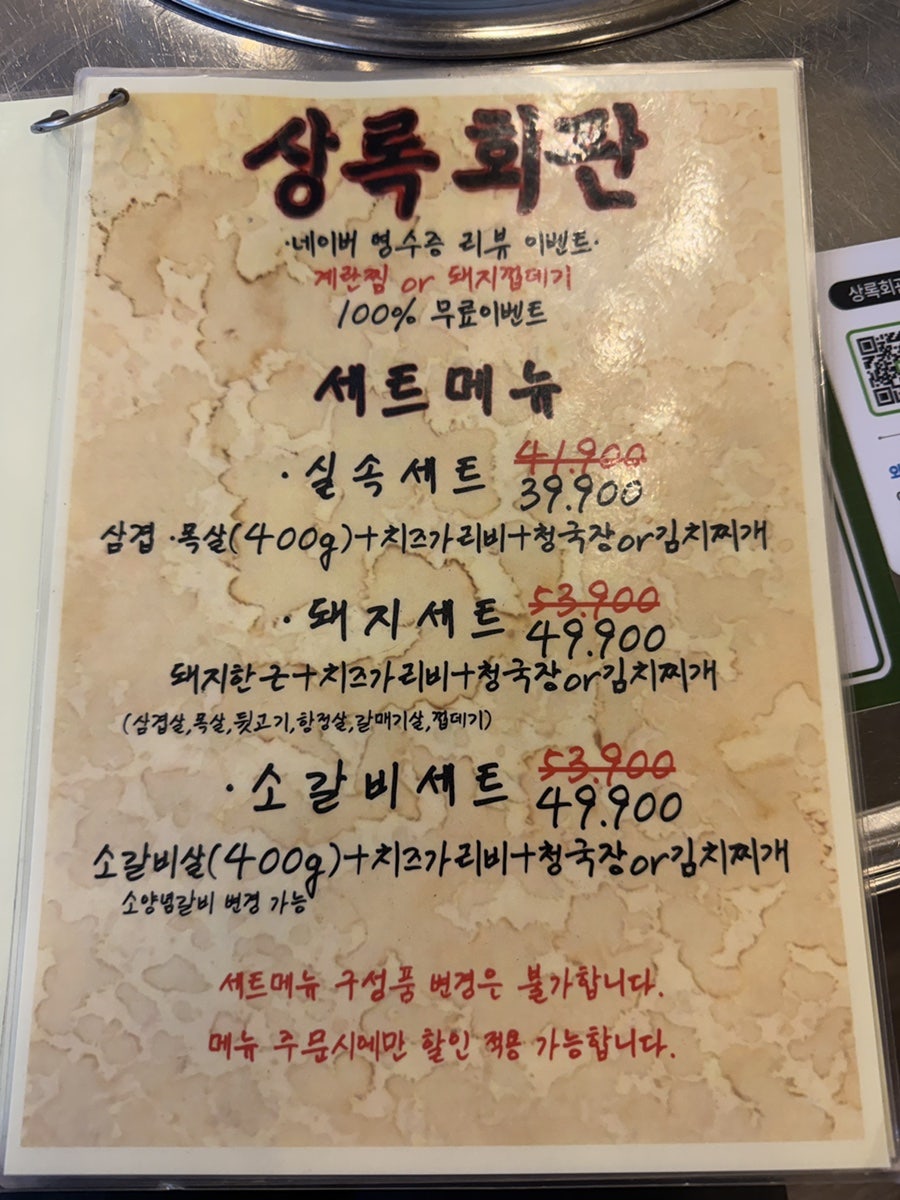 상록회관
·네이버 영수증 리뷰 이벤트·
계란찜 or 돼지껍데기
100% 무료이벤트
세트메뉴
·실속세트 41.900
39.900
삼겹·목살(400g)+치즈가리비+청국장or김치찌개
·돼지세트 53.900
49.900
돼지한근+치즈가리비+청국장or김치찌개
(삼겹살,목살,뒷고기,항정살,갈매기살,껍데기)
·소갈비세트 53.900
49.900
소갈비살(400g)+치즈가리비+청국장or김치찌개
소양념갈비 변경 가능
세트메뉴 구성품 변경은 불가합니다.
메뉴 주문시에만 할인 적용 가능합니다.
상록회관